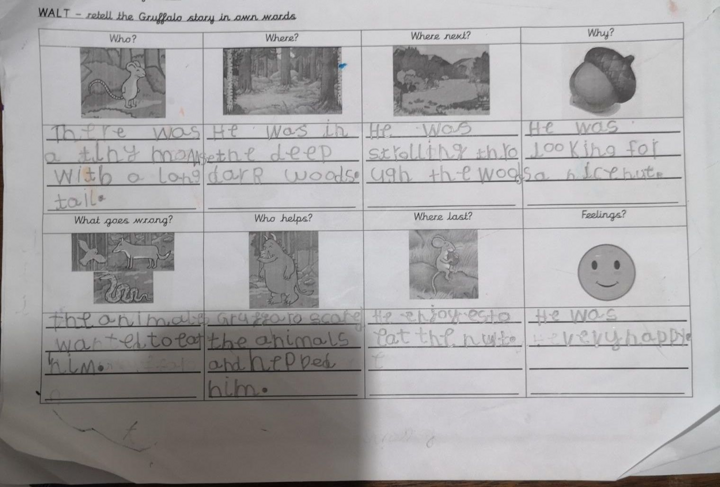 WALT - retell the Gruffalo story in own words
Who?
There was
a tiny mouse
with a long
tail.
Where?
He was in
the deep
dark woods.
Where next?
He was
strolling thro
ugh the woods
Why?
He was
looking for
a nice nut.
What goes wrong?
the animals
wanted to eat
him.
Who helps?
Gruffalo scare
the animals
and helpped
him.
Where last?
He enjoy esto
eat the nut.
Feelings?
He was
very happy.